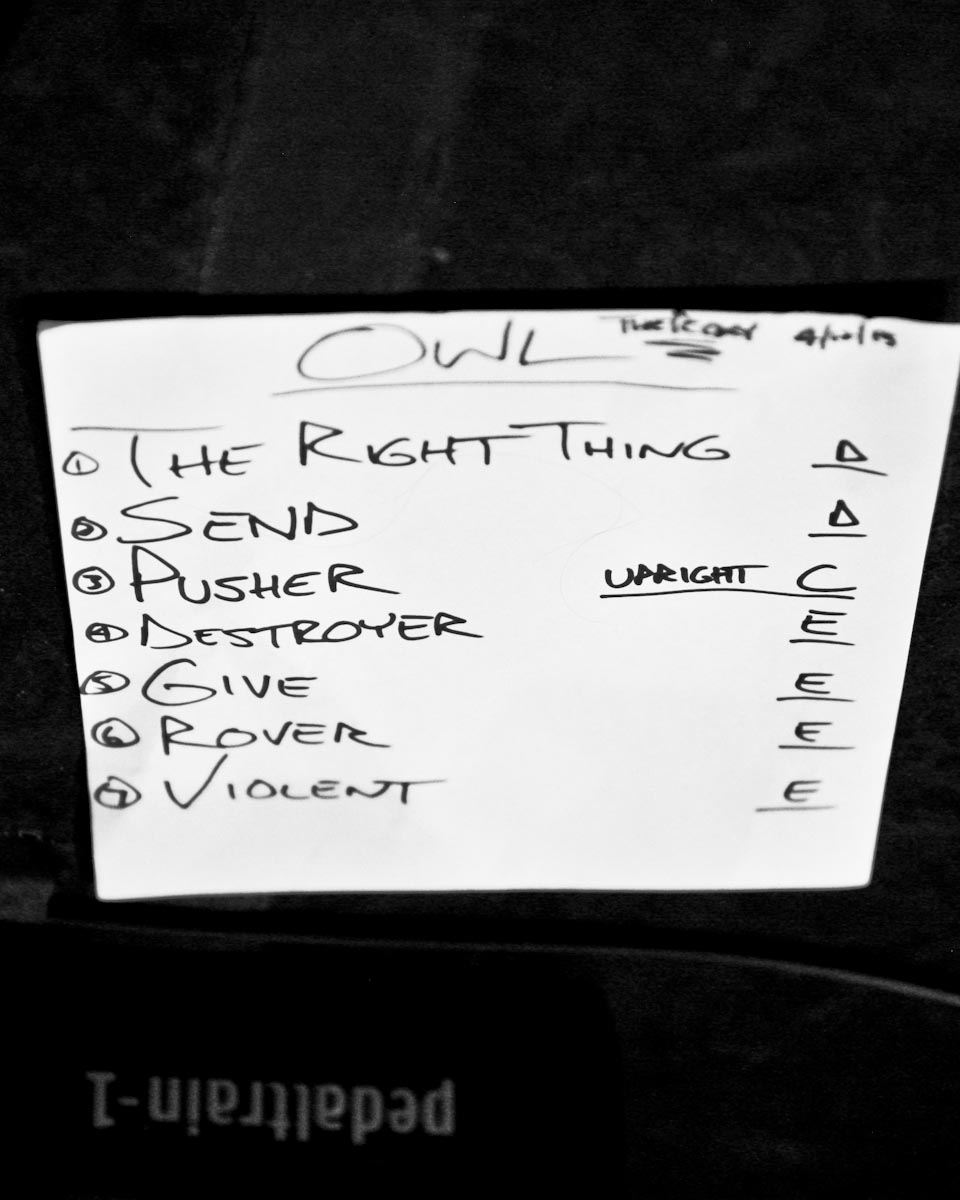 OWL
① THE RIGHT THING D
② SEND D
③ PUSHER UPRIGHT C
④ DESTROYER E
⑤ GIVE E
⑥ ROVER E
⑦ VIOLENT E
pedaltrain-1